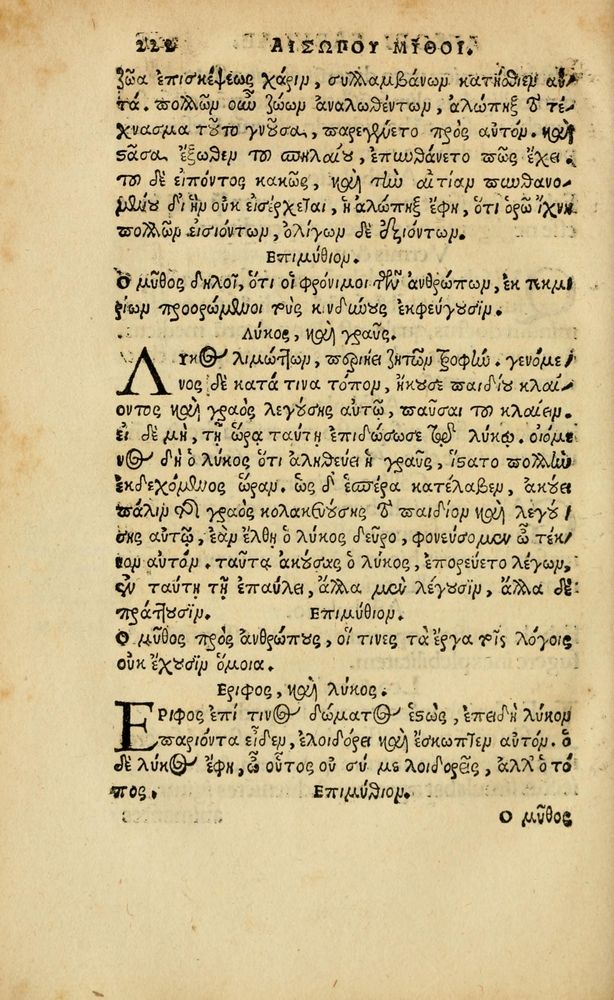 ΑΙΣΩΠΟΥ ΜΥΘΟΙ.
ζῶα ἐπισκέψεως χάριν, συλλαμβάνων κατήσθιεν αὐ
τά. πολλῶν οὖν ζώων ἀναλωθέντων, ἀλώπηξ τὸ τέ-
χνασμα τοῦτο γνοῦσα, παρεγένετο πρὸς αὐτόν. καὶ
στᾶσα ἔξωθεν τοῦ σπηλαίου, ἐπυνθάνετο πῶς ἔχει.
τοῦ δὲ εἰπόντος κακῶς, καὶ τὴν αἰτίαν πυνθανο-
μένου δι ἣν οὐκ εἰσέρχεται, ἡ ἀλώπηξ ἔφη, ὅτι ὁρῶ ἴχνη
πολλῶν εἰσιόντων, ὀλίγων δὲ ἐξιόντων.
Ἐπιμύθιον.
Ὁ μῦθος δηλοῖ, ὅτι οἱ φρόνιμοι τῶν ἀνθρώπων, ἐκ τεκμη-
ρίων προορώμενοι τοὺς κινδύνους ἐκφεύγουσιν.
Λύκος, καὶ γραῦς.
Λύκος λιμώττων, περιῄει ζητῶν τροφήν. γενόμε-
νος δὲ κατά τινα τόπον, ἤκουσε παιδίου κλαί-
οντος καὶ γραὸς λεγούσης αὐτῷ, παῦσαι τοῦ κλαίειν.
εἰ δὲ μὴ, τῇ ὥρᾳ ταύτῃ ἐπιδώσω σε τῷ λύκῳ. οἰόμε-
νος δὴ ὁ λύκος ὅτι ἀληθεύει ἡ γραῦς, ἵστατο πολλὴν
ἐκδεχόμενος ὥραν. ὡς δ' ἑσπέρα κατέλαβεν, ἀκούει
πάλιν τῆς γραὸς κολακευούσης τὸ παιδίον καὶ λεγού-
σης αὐτῷ, ἐὰν ἔλθῃ ὁ λύκος δεῦρο, φονεύσομεν ὦ τέκ-
νον αὐτόν. ταῦτα ἀκούσας ὁ λύκος, ἐπορεύετο λέγων,
ἐν ταύτῃ τῇ ἐπαύλει, ἄλλα μὲν λέγουσιν, ἄλλα δὲ
πράττουσιν. Ἐπιμύθιον.
Ὁ μῦθος πρὸς ἀνθρώπους, οἵ τινες τὰ ἔργα τοῖς λόγοις
οὐκ ἔχουσιν ὅμοια.
Ἔριφος, καὶ λύκος.
Ἔριφος ἐπί τινος δώματος ἑστὼς, ἐπειδὴ λύκον
παριόντα εἶδεν, ἐλοιδόρει καὶ ἔσκωπτεν αὐτόν. ὁ
δὲ λύκος ἔφη, ὦ οὗτος οὐ σύ με λοιδορεῖς, ἀλλ' ὁ τό-
πος. Ἐπιμύθιον.
Ὁ μῦθος